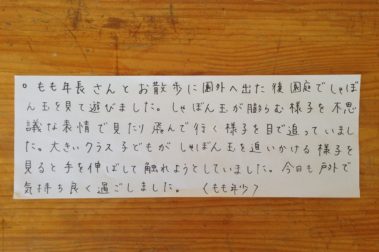 ○ もも年長さんとお散歩に園外へ出た後園庭でしゃぼ
ん玉を見て遊びました。しゃぼん玉が膨らむ様子を不思
議な表情で見たり飛んで行く様子を目で追っていまし
た。大きいクラス子どもがしゃぼん玉を追いかける様子を
見ると手を伸ばして触れようとしていました。今日も戸外で
気持ち良く過ごしました。 (もも年少)